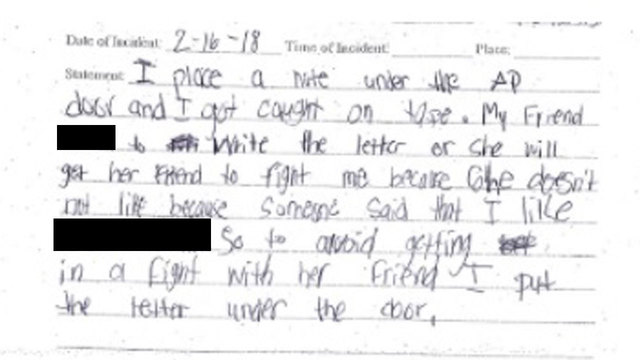 Date of Incident: 2-16-18 Time of Incident: Place:
Statement: I place a note under the AP
door and I got caught on tape. My Friend
to write the letter or she will
get her friend to fight me because she doesn't
not like because someone said that I like
So to avoid getting
in a fight with her friend I put
the letter under the door.